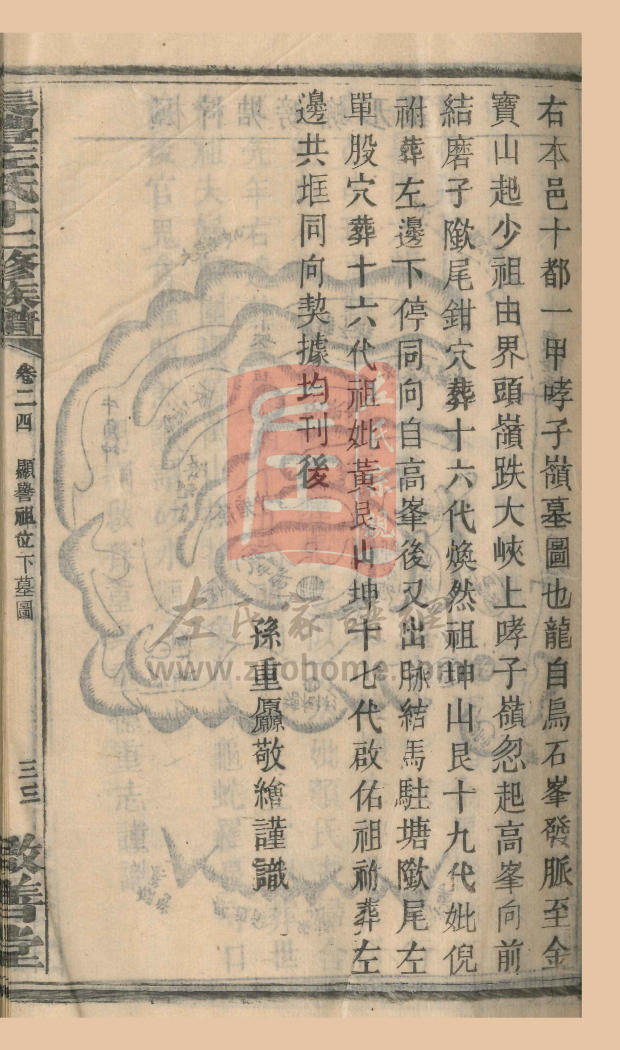 右本邑十都一甲哮子嶺墓圖也龍自烏石峯發脈至金
寶山起少祖由界頭嶺跌大峽上哮子嶺忽起高峯向前
結磨子隞尾鉗穴葬十六代煥然祖坤山艮十九代妣倪
祔葬左邊下停同向自高峯後又出脉結馬駐塘隞尾左
單股穴葬十六代祖妣黃艮山坤十七代啟佑祖祔葬左
邊共堆同向契據均刊後
孫重愿敬繪謹識
氏十二修族譜
卷二四 顯善祖位下墓圖
三三
敦善堂
左氏家譜
www.zuohome.com